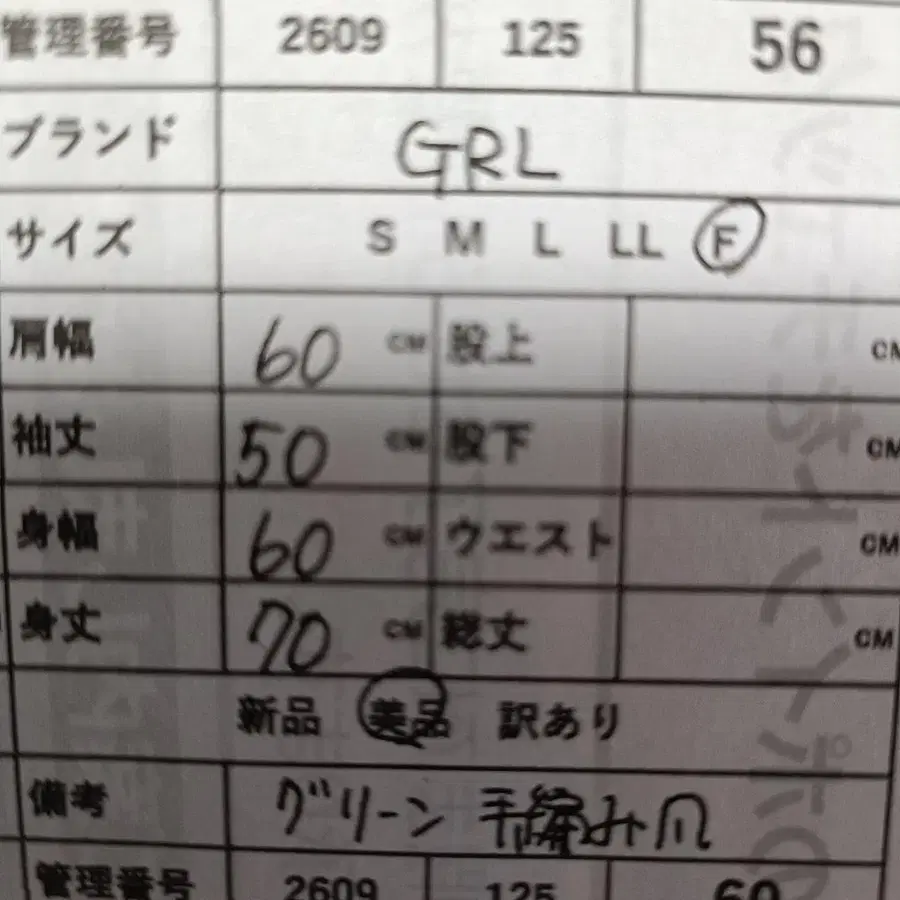 管理番号 2609 125 56
ブランド GRL
サイズ S M L LL F
肩幅 60 CM 股上 CM
袖丈 50 CM 股下 CM
身幅 60 CM ウエスト CM
身丈 70 CM 総丈 CM
新品 美品 訳あり
備考 グリーン 手編み爪
管理番号 2609 125 60